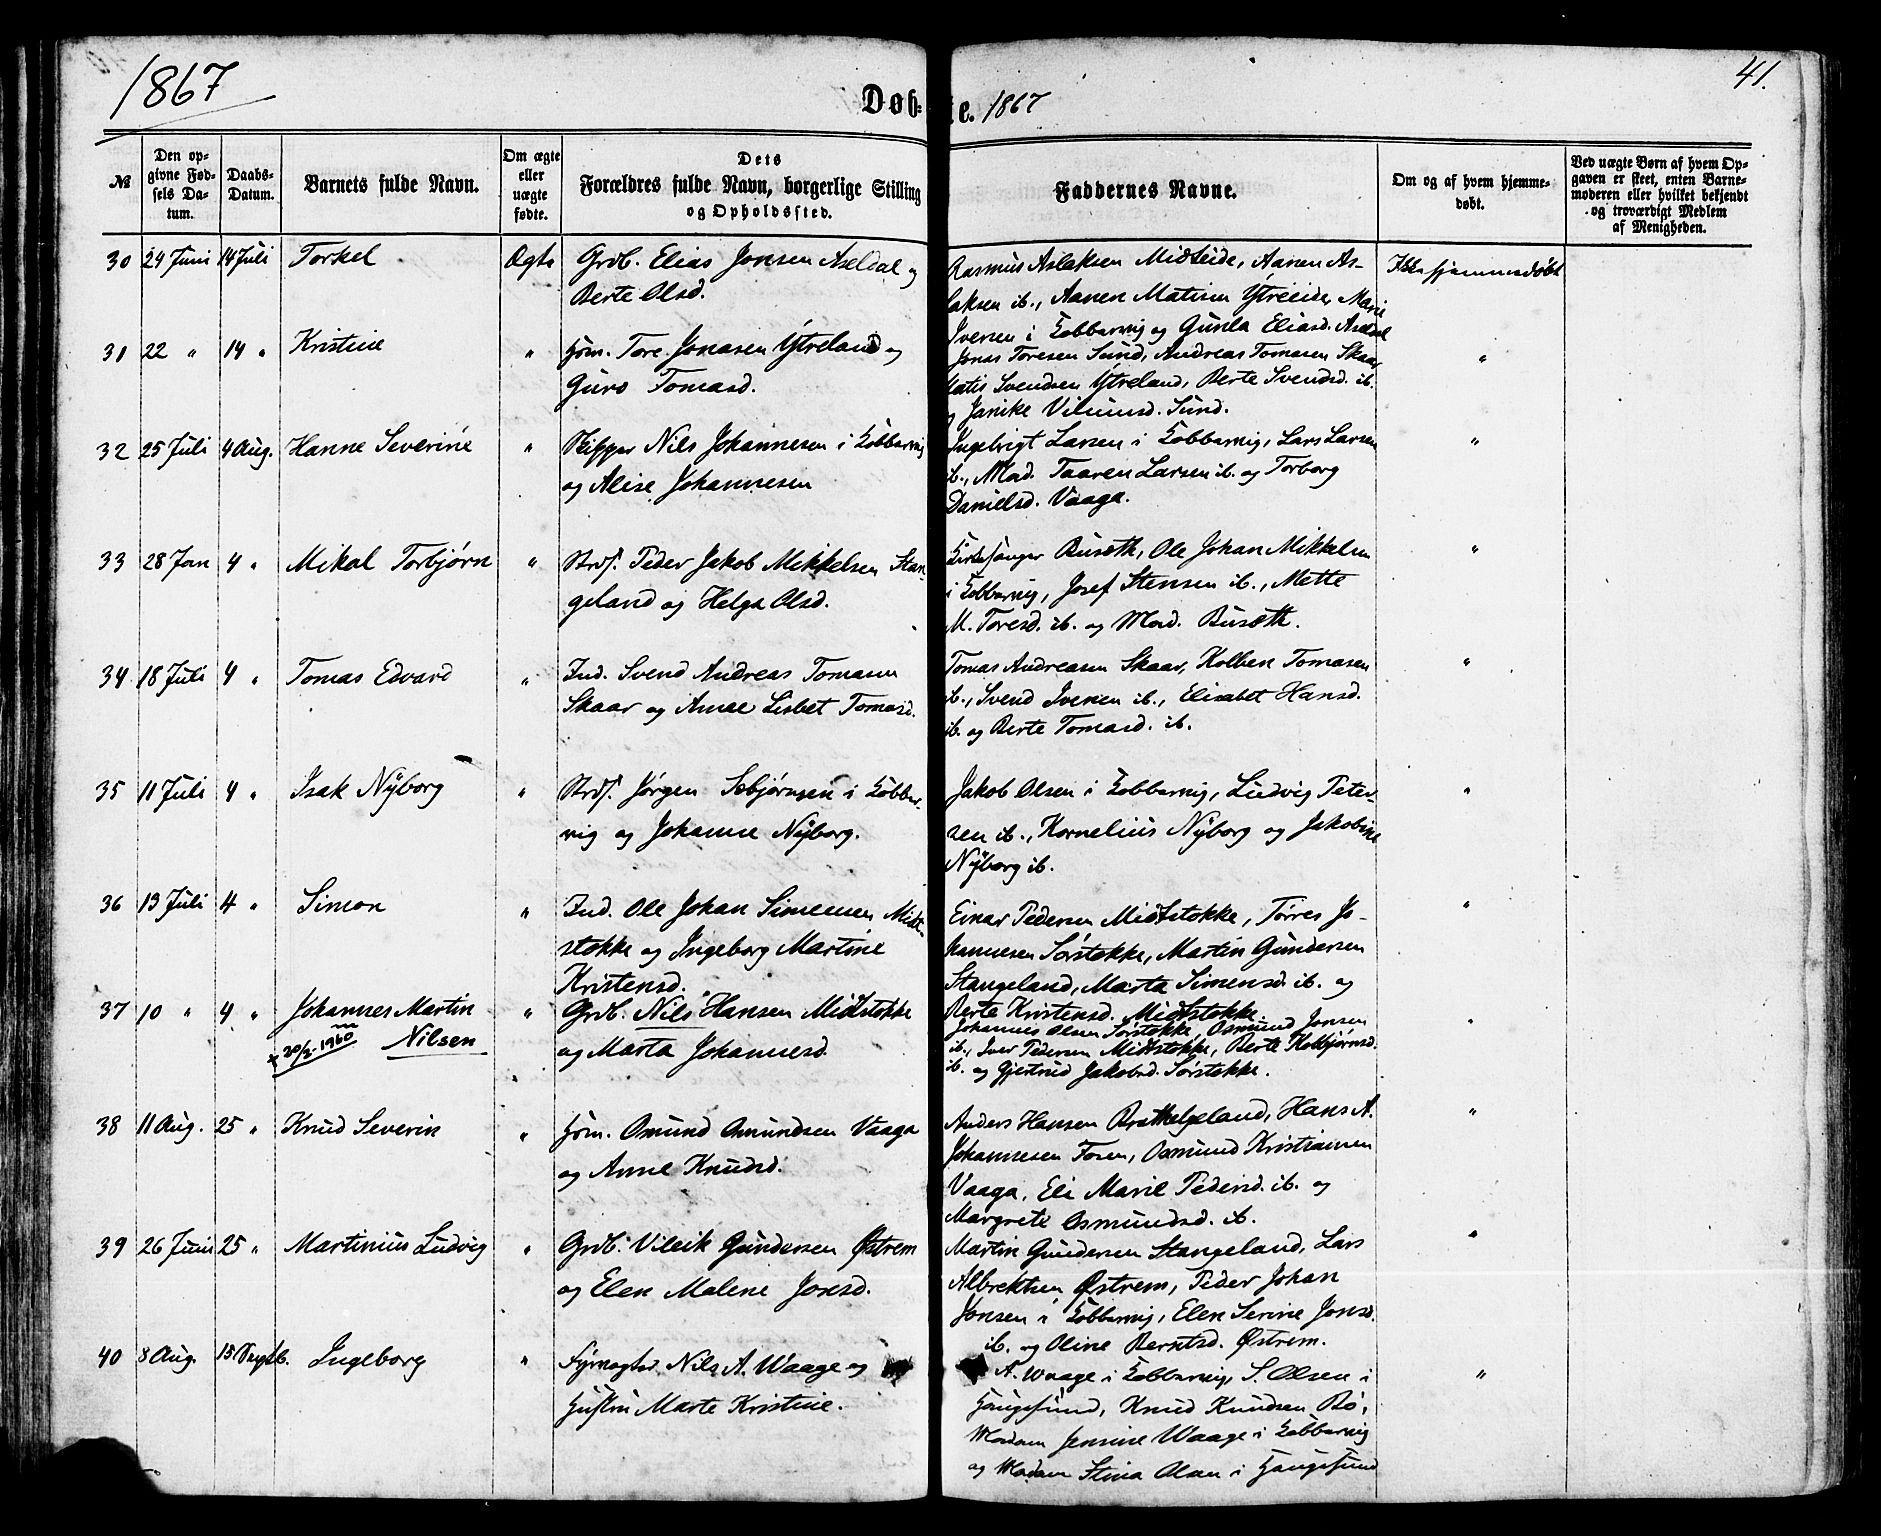 1867
Døb-
te. 1867
41.
№
Den op-
givne Fød-
sels Da-
tum.
Daabs-
Datum.
Barnets fulde Navn.
Om ægte
eller
uægte
fødte.
Dets
Forældres fulde Navn, borgerlige Stilling
og Opholdssted.
Faddernes Navne.
Om og af hvem hjemme-
døbt.
Ved uægte Børn af hvem Op-
gaven er skeet, enten Barne-
moderen eller hvilket bekjendt
og troværdigt Medlem
af Menigheden.
30 24 Juni 14 Juli Torkel Ægte Grdb. Elias Jonsen Aseldal og
Berte Olsd.
Rasmus Aslaksen Midteide, Aanen As-
laksen ib., Aanen Matisen Ytreeide, Marie
Iversen i Kobbervig og Gunla Eliasd. Aseldal
Ikke hjemmedøbt
31 22 " 14 " Kristine " Hsm. Tore Jonasen Ytreland og
Guro Tomasd.
Jonas Toresen Sund, Andreas Tomasen Skaar
Matis Svendsen Ytreland, Berte Svendsd. ib.
og Janike Villumsd. Sund.
"
32 25 Juli 4 Aug. Hanne Severine " Skipper Nils Johannesen i Kobbervig
og Alise Johannesen
Ingebrigt Larsen i Kobbervig, Lars Larsen
ib., Mad. Taaren Larsen ib. og Torborg
Danielsd. Vaaga.
"
33 28 Jan 4 " Mikal Torbjørn " Strds. Peder Jakob Mikkelsen Stan-
geland og Helga Olsd.
Kirkesanger Busæth, Ole Johan Mikkelsen
i Kobbervig, Josef Stensen ib., Mette
M. Toresd. ib. og Mad. Busæth.
"
34 18 Juli 4 " Tomas Edvard " Ind. Svend Andreas Tomasen
Skaar og Anne Lisbet Tomasd.
Tomas Andreasen Skaar, Kolben Tomasen
ib., Svend Iversen ib., Elisabet Hansd.
ib. og Berte Tomasd. ib.
"
35 11 Juli 4 " Isak Nyborg " Strds. Jørgen Sebjørnsen i Kobber-
vig og Johanne Nyborg.
Jakob Olsen i Kobbervig, Ludvig Peter-
sen ib., Kornelius Nyborg og Jakobine
Nyborg ib.
"
36 13 Juli 4 " Simon " Ind. Ole Johan Simensen Midt-
stokke og Ingeborg Martine
Kristensd.
Einar Pedersen Midtstokke, Tørres Jo-
hannesen Sørstokke, Martin Gundersen
Stangeland, Marta Simensd. ib. og
Berte Kristensd. Midtstokke.
"
37 10 " 4 " Johannes Martin " Grdb. Nils Hansen Midtstokke
Nilsen og Marta Johannesd.
Johannes Olsen Sørstokke, Osmund Jonsen
ib., Iver Pedersen Midtstokke, Berte Kolbjørnsd.
ib. og Gjertrud Jakobsd. Sørstokke.
"
38 11 Aug. 25 " Knud Severin " Hsm. Osmund Osmundsen Vaaga
og Anne Knudsd.
Anders Hansen Bratthelgeland, Hans A.
Johannesen Fosen, Osmund Kristiansen
Vaaga, Eli Marie Pedersd. ib. og
Margrete Osmundsd. ib.
"
39 26 Juni 25 " Martinius Ludvig " Grdb. Vileik Gundersen Østrem
og Elen Malene Jonsd.
Martin Gundersen Stangeland, Lars
Albrektsen Østrem, Peder Johan
Jonsen i Kobbervig, Elen Serine Jonsd.
ib. og Oline Berntsd. Østrem.
"
40 8 Aug. 15 Septb. Ingeborg " Fyrvogter Nils A. Waage og
Hustru Marte Kristine.
A. Waage i Kobbervig, S. Olsen i
Haugesund, Knud Knudsen Bø,
Madam Jensine Waage i Kobbervig
og Madam Stina Olsen i Haugesund
"